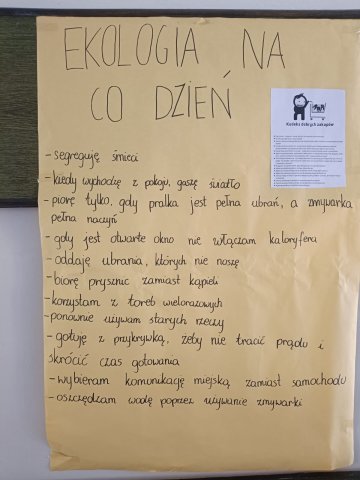 EKOLOGIA NA
CO DZIEŃ
Kodeks dobrych zakupów
- segreguję śmieci
- kiedy wychodzę z pokoju, gaszę światło
- piorę tylko, gdy pralka jest pełna ubrań, a zmywarka
pełna naczyń
- gdy jest otwarte okno nie włączam kaloryfera
- oddaję ubrania, których nie noszę
- biorę prysznic zamiast kąpieli
- korzystam z toreb wielorazowych
- ponownie używam starych rzeczy
- gotuję z przykrywką, żeby nie tracić prądu i
skrócić czas gotowania
- wybieram komunikację miejską, zamiast samochodu
- oszczędzam wodę poprzez używanie zmywarki